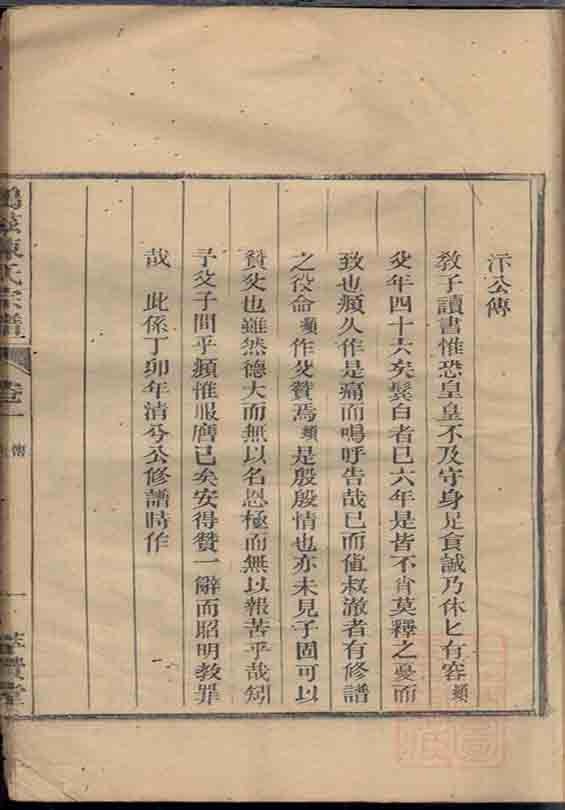 汧公傳
教子讀書惟恐皇皇不及守身足食誠乃休匕有容頫
父年四十六矣鬓白者已六年是皆不肖莫釋之憂而
致也頫久作是痛而鳴呼告哉已而值叔澈者有修譜
之役命頫作父贊焉頫是殷殷情也亦未見子固可以
贊父也雖然德大而無以名恩極而無以報苦乎哉矧
予父子間乎頫惟服膺已矣安得贊一辭而昭明教罪
哉 此係丁卯年清兮公修譜時作
陳氏宗譜 卷一 傳 一